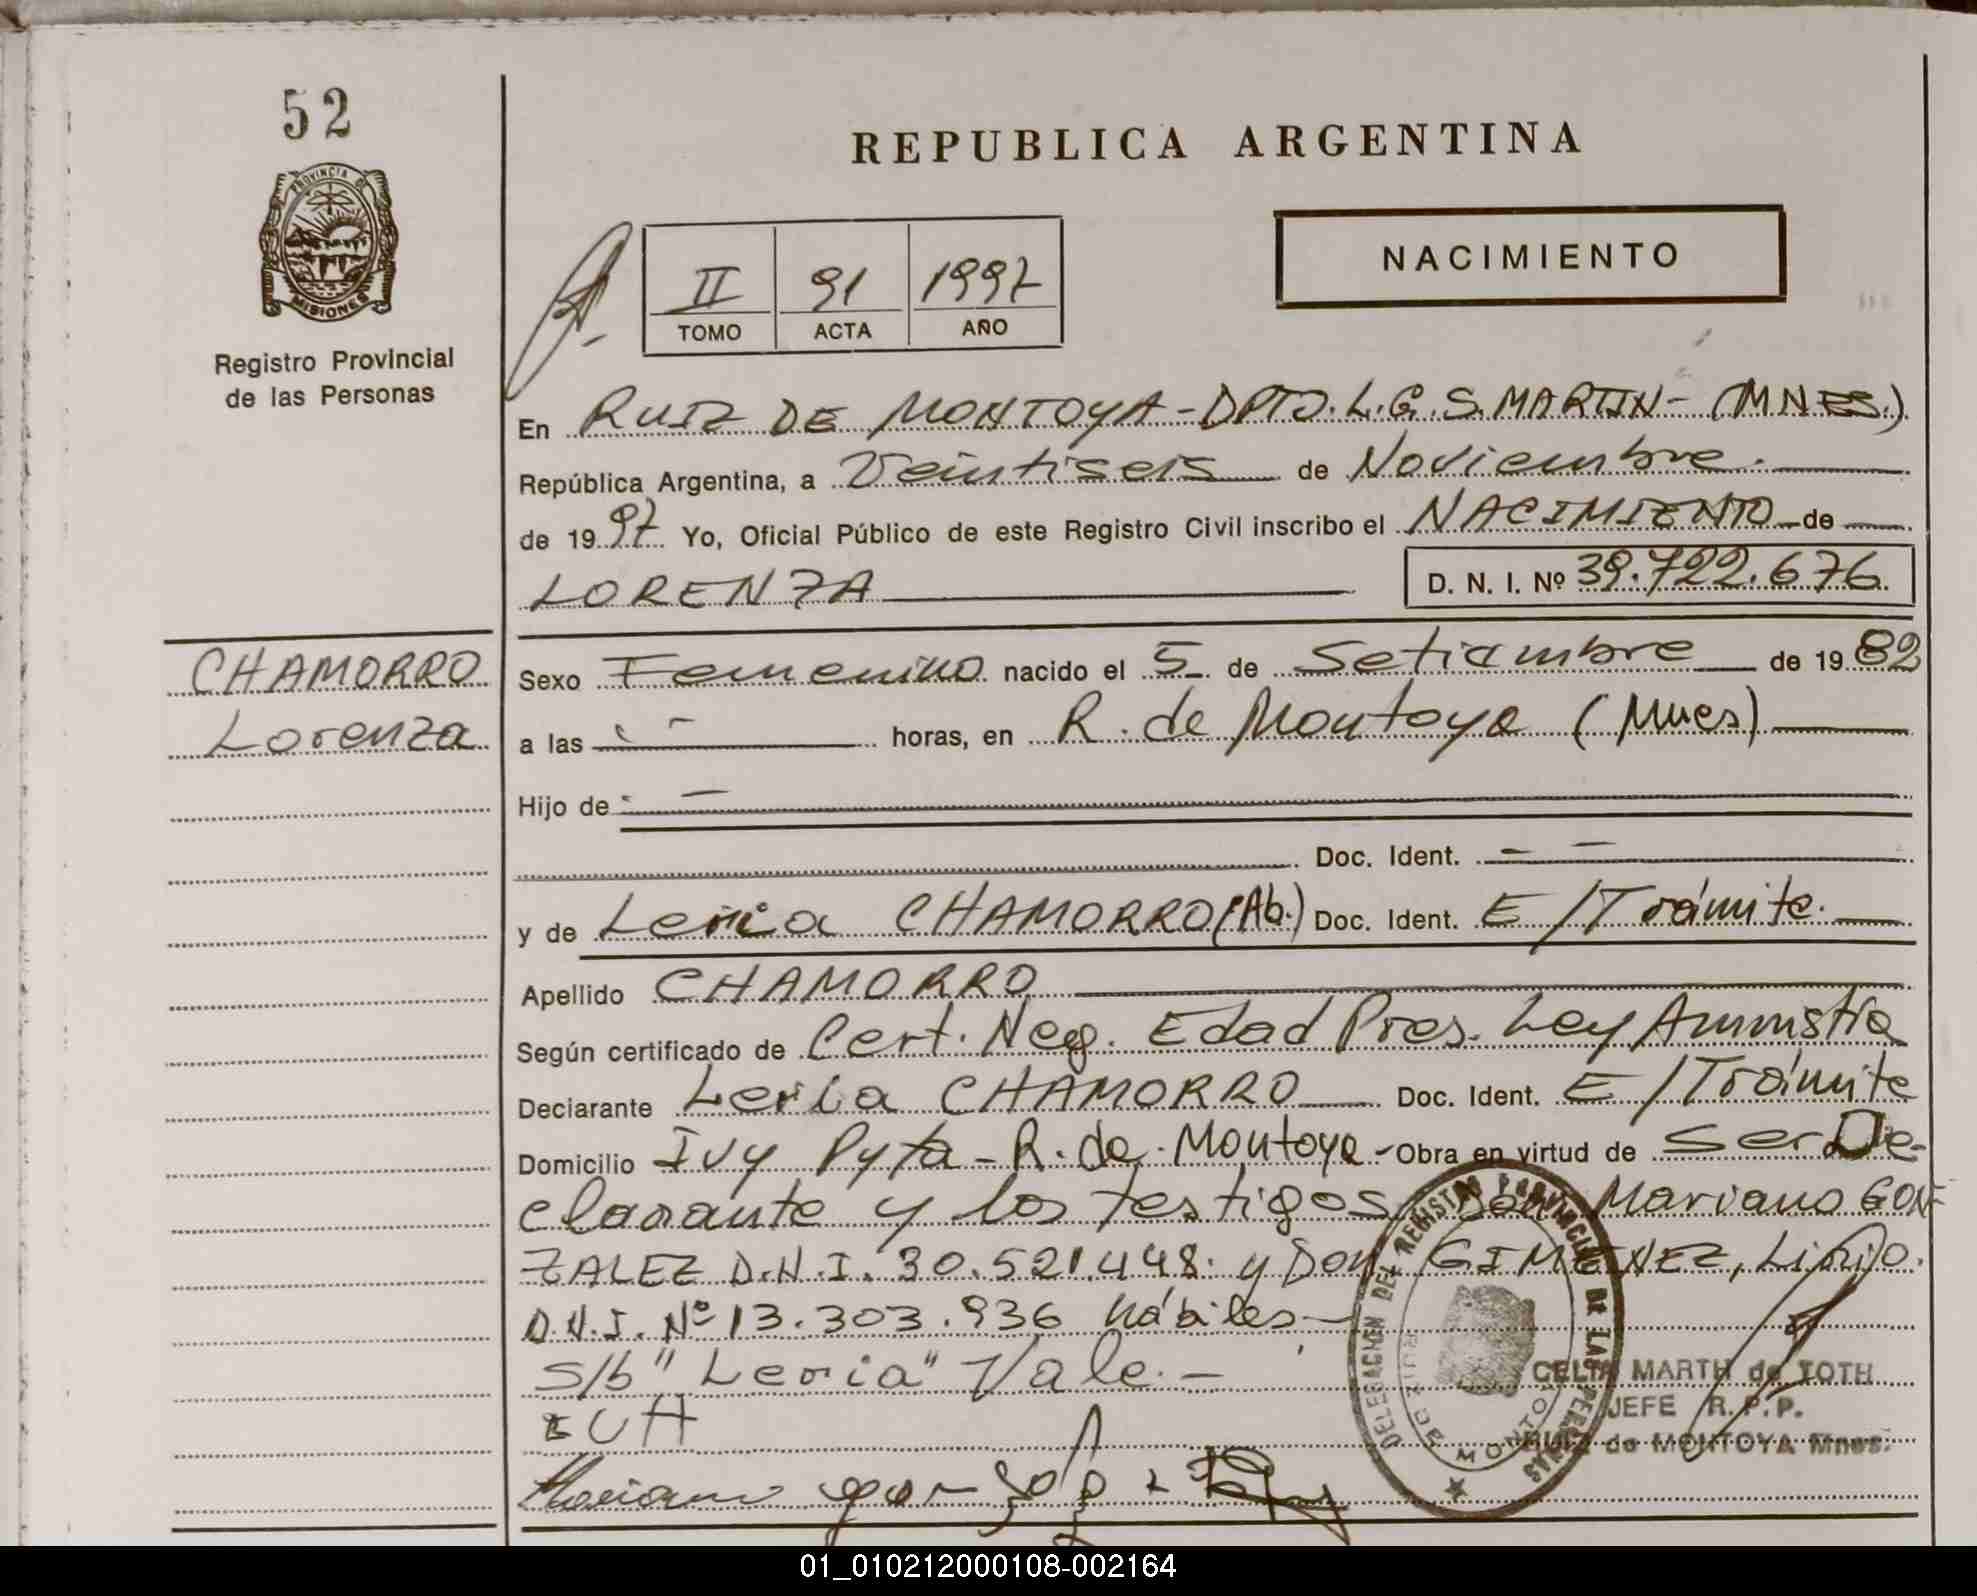 52
REPUBLICA ARGENTINA
PROVINCIA DE
MISIONES
NACIMIENTO
II 91 1997
TOMO ACTA AÑO
Registro Provincial
de las Personas
En RUIZ DE MONTOYA-DPTO.L.G.S.MARTIN-(MNES.)
República Argentina, a Veintiseis de Noviembre.
de 1997 Yo, Oficial Público de este Registro Civil inscribo el NACIMIENTO de
LORENZA D. N. I. Nº 39.722.676
CHAMORRO
Lorenza
Sexo Femenino nacido el 5 de Setiembre de 1982
a las - horas, en R. de Montoya (Mnes)
Hijo de -
Doc. Ident. - -
y de Leria CHAMORRO (Ab.) Doc. Ident. E/Trámite.
Apellido CHAMORRO
Según certificado de Cert. Neg. Edad Pres. Ley Amnistia
Declarante Leria CHAMORRO Doc. Ident. E/Trámite
Domicilio Ivy Pyta - R. de Montoya - Obra en virtud de ser De-
clarante y los testigos Don Mariano GON-
ZALEZ D.N.I. 30.521.448. y Don GIMENEZ, Lirio.
D.N.I. Nº 13.303.936 hábiles-
s/b "Leria" Vale.-
DELEGACION DEL REGISTRO PROVINCIAL DE LAS PERSONAS
RUIZ DE MONTOYA
CELIA MARTH de TOTH
JEFE R.P.P.
RUIZ de MONTOYA Mnes.
Mariano gonzalez
01_010212000108-002164